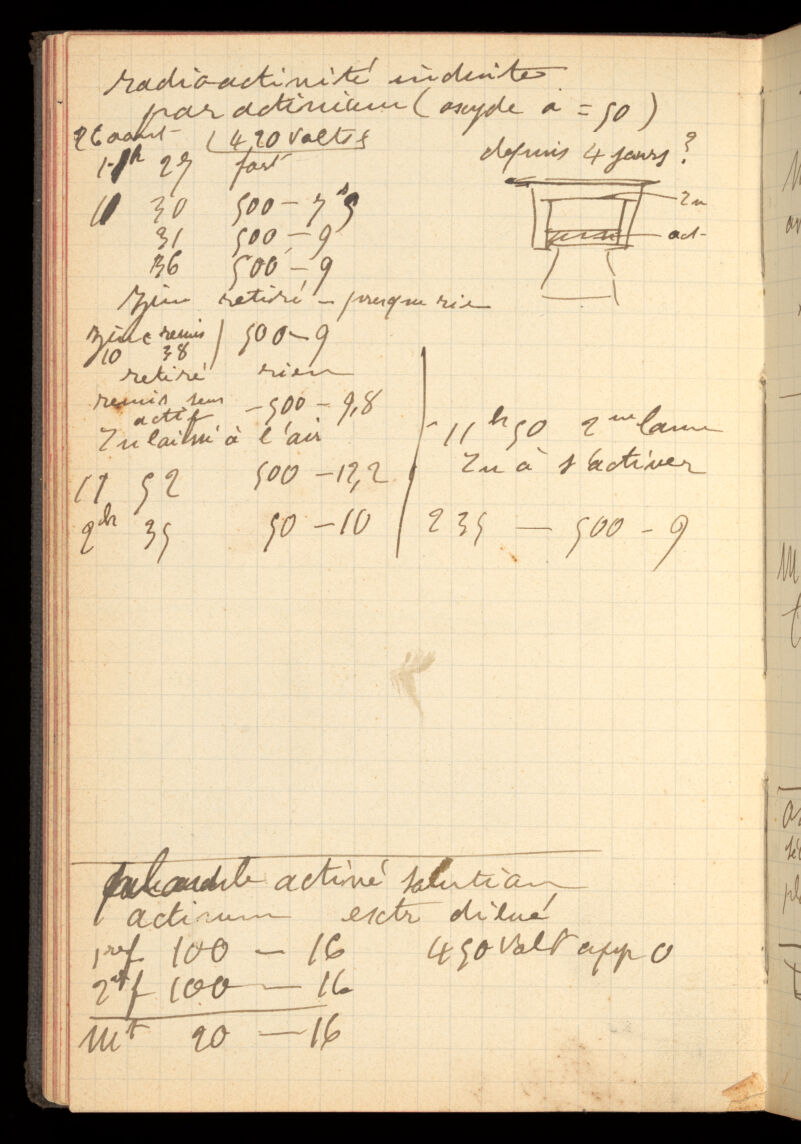 radioactivité induite
par actinium (oxyde a = 50)
26 aout (420 volts
depuis 4 jours ?
1h 27 fort
30 500 – 7s5
Zn
31 500 – 9
act
36 500 – 9
Zinc retiré – presque rien
zinc remis
10 38 ) 500 – 9
retiré rien
remis sans
actif – 500 – 9,8
Zn laissé à l'air
11 52 500 – 12,2
2h 35 50 – 10
11h50 2me lame
Zn à s'activer
2 35 – 500 – 9
activé solution
actinium extr dilué
1ref 100 – 16 450 Volt app 0
2ef 100 – 16
Mt 20 – 16